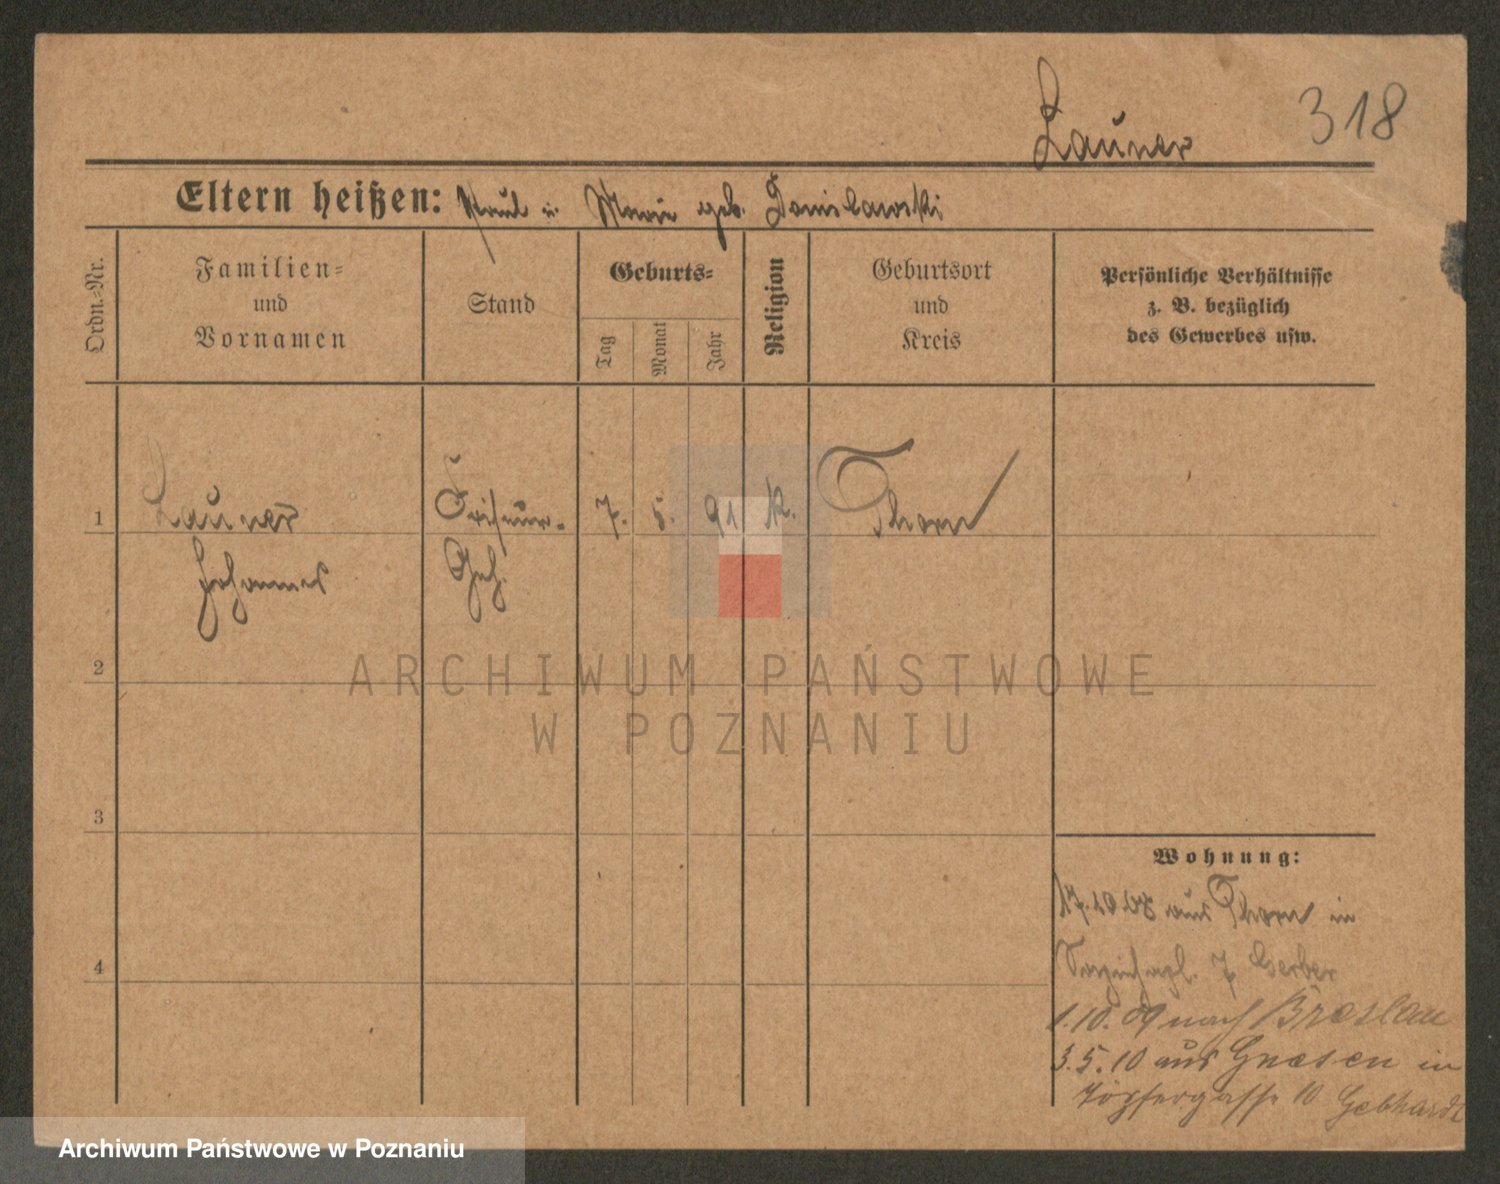 318
Launer
Eltern heißen: Paul u. Marie geb. Donislawski
Ordn.-Nr.
Familien-
und
Vornamen
Stand
Geburts-
Tag
Monat
Jahr
Religion
Geburtsort
und
Kreis
Persönliche Verhältnisse
z. B. bezüglich
des Gewerbes usw.
1 Launer Friseur- 7. 5. 91 K. Thorn
Johannes Geh.
2
3
4
Wohnung:
17.10.08 aus Thorn in
7 Gerber
1.10.09 nach Breslau
3.5.10 aus Gnesen in
Töpfergasse 10 Gebhardt
ARCHIWUM PAŃSTWOWE
W POZNANIU
Archiwum Państwowe w Poznaniu